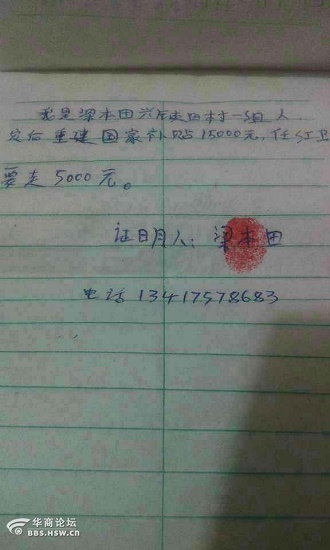 我是梁本田六年大田村一组人
灾后重建国家补贴15000元,任红卫
要走5000元。
证明人:梁本田
电话 13417578683
华商论坛
BBS.HSW.CN